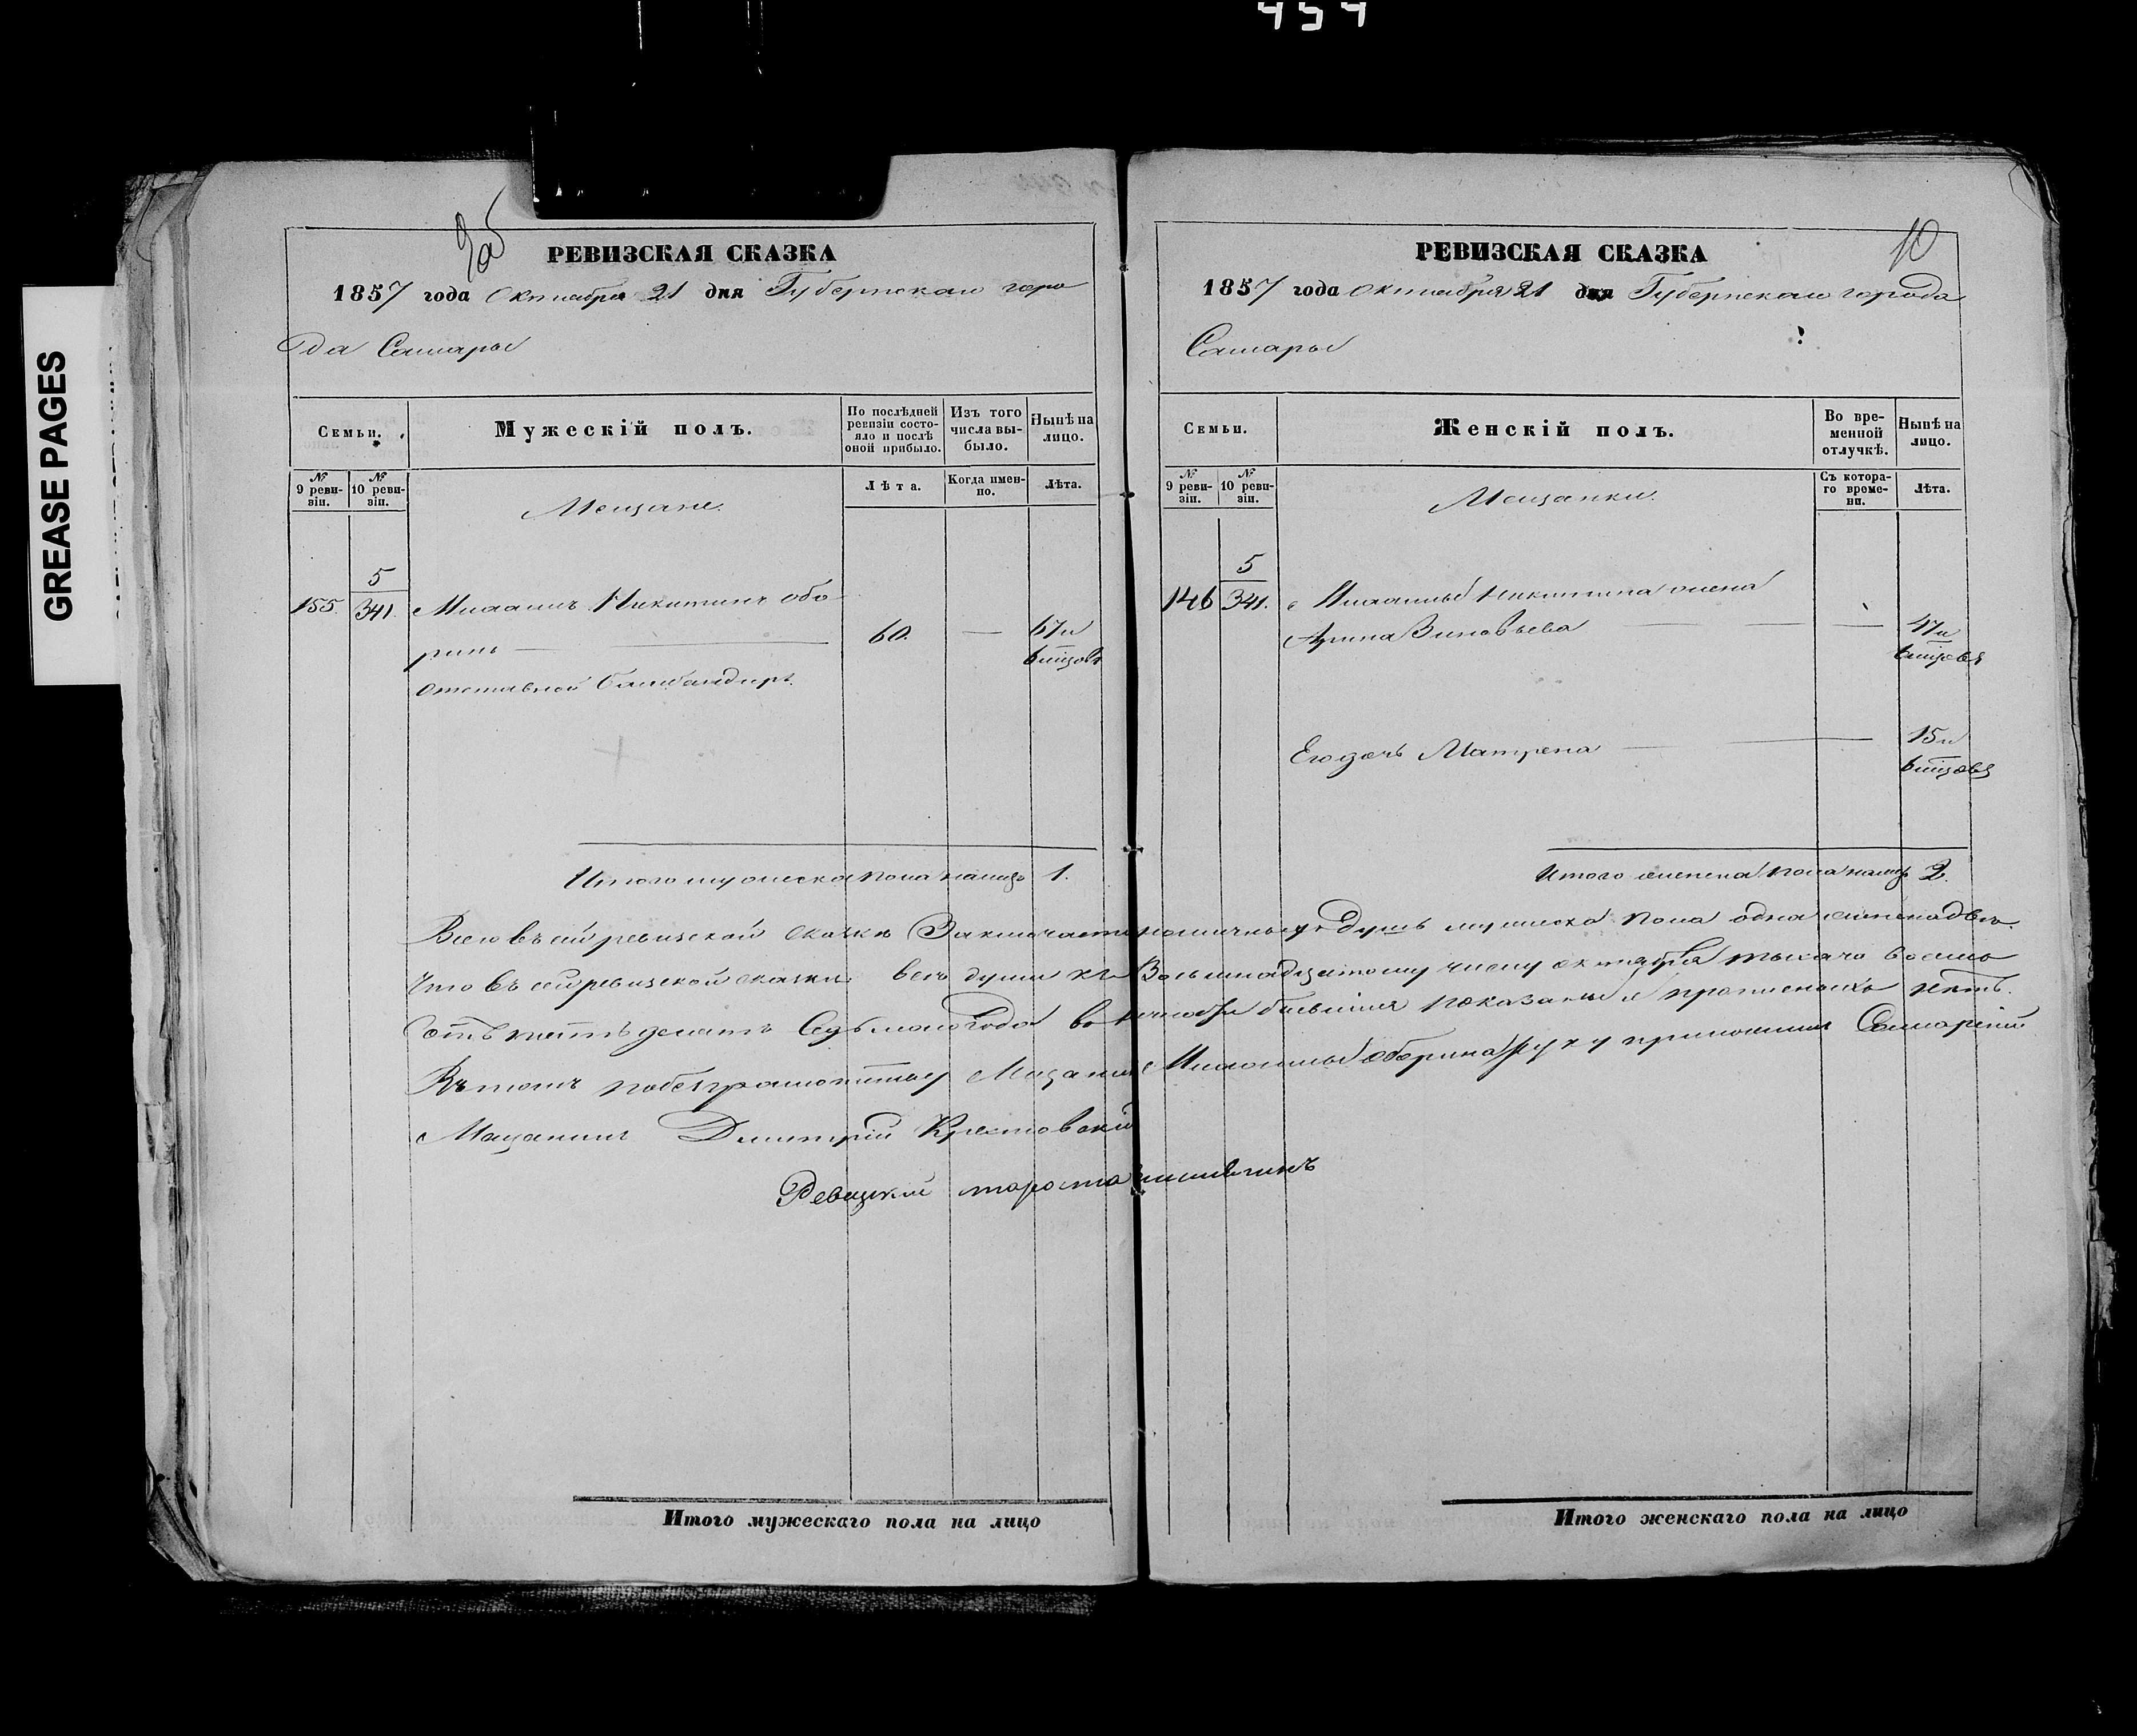 454
GREASE PAGES
9об
РЕВИЗСКАЯ СКАЗКА
1857 года Октября 21 дня Губернскаго горо
да Самары
Семьи.
Мужескій полъ.
По послѣдней ревизіи состояло и послѣ оной прибыло.
Изъ того числа выбыло.
Нынѣ на лицо.
№ 9 ревизіи.
№ 10 ревизіи.
Мещане.
Лѣта.
Когда именно.
Лѣта.
5
155. 341. Никитинъ Обо
ринъ 60. — 67 и
6 мѣцовъ
отставной Бамбандиръ.
Итого мужеска пола налицо 1.
10
РЕВИЗСКАЯ СКАЗКА
1857 года Октября 21 дня Губернскаго города
Самары
Семьи.
Женскій полъ.
Во временной отлучкѣ.
Нынѣ на лицо.
№ 9 ревизіи.
№ 10 ревизіи.
Мещанки.
Съ котораго времени.
Лѣта.
5
146 341. Никитина жена
Арина Зиновьева — 47 и
6 мѣцовъ
Его дочь Матрена — 15 и
6 мѣцовъ
Итого женска пола налицо 2.
Всего въ сей ревизской сказкѣ Заключается наличныхъ Душъ мужеска пола одна женска двѣ.
Что въ сей ревизской сказки всѣ души къ Восьмнадцатому числу октября тысяча восемь
сотъ пятьдесятъ Седьмаго Года бывшія показаны и прописныхъ нѣтъ.
Въ томъ побезграмотству Мещанина Оборина руку приложилъ Самарскій
Мещанинъ Дмитрій Крестовскій
Ревизскій староста
Итого мужескаго пола на лицо
Итого женскаго пола на лицо